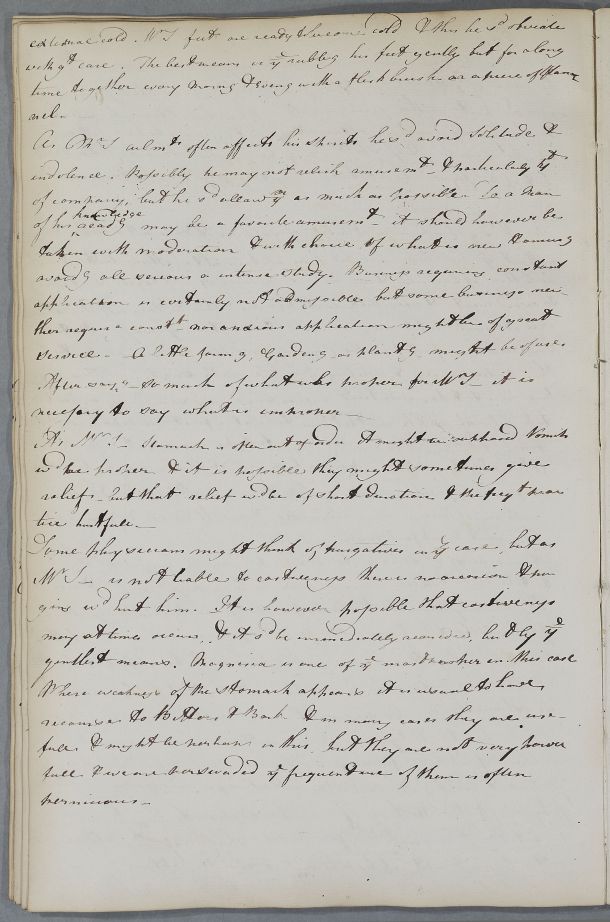 external cold. Mr S feet are ready to become cold & this he sd obviate
with gt care. The best means is ye rubbing his feet gently but for a long
time together every morng & eveng with a flesh brush or a piece of flan
nel.
As Mr S ailmts often affects his spirits he sd avoid solitude &
indolence. Possibly he may not relish amusemt & particularly yt
of company, but he sd allow ym as much as possible. To a Man
of his knowledge readg may be a favorite amusemt - it should however be
taken with moderation & with choice of what is new & amusg
avoidg all serious or intense study. Business requiring constant
application is certainly not admissible but some business nei-
ther require constt nor anxious application might be of great
service. A little farmg, Gardeng or plantg might be of use.
After sayg so much of what was proper for Mr S - it is
necessary to say what is improper -
As Mr S - stomach is often out of order it might be supposed Vomits
wd be proper & it is possible they might sometimes give
relief - but that relief wd be of short duration & the freqt prac
tice hurtfull -
Some physicians might think of purgatives in ye case, but as
Mr S - is not liable to costiveness there is no occasion & pur
ging wd hurt him. It is however possible that costiveness
may at times occurr, & it sd be immediately remedied, but by ye
gentlest means. Magnesia is one of ye most proper in this case
Where weakness of the stomach appears it is usual to have
recourse to Bitters & Bark & in many cases they are use-
full & might be perhaps in this, but they are not very power
full & we are perswaded ye frequent use of them is often
pernicious -